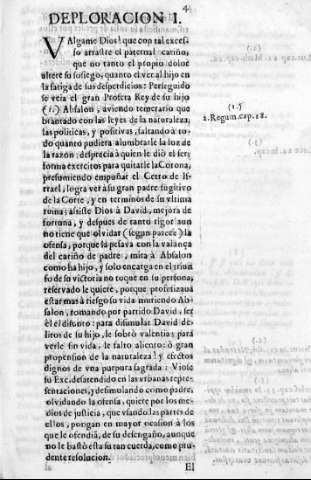 4
DEPLORACION I.
VAlgame Dios! que con tal exces-
so arrastre el paternal cariño,
que no tanto el propio dolor
altere su sosiego, quanto el ver al hijo en
la fatiga de sus desperdicios: Perseguido
se veia el gran Profeta Rey de su hijo
(1.) Absalon, aviendo temerario que
brantado con las leyes de la naturaleza,
las politicas, y positivas, faltando à to-
do quanto pudiera alumbrarle la luz
de la razon: desprecia à quien le diò el ser;
forma exercitos para quitarle la Corona,
presumiendo empuñar el Cetro de Is-
rael, logra ver à su gran padre fugitivo
de la Corte, y en terminos de su vltima
ruina; assiste Dios à David, mejora de
fortuna, y despues de tanto rigor aun
no tiene que olvidar (segun parece) la
ofensa, porque la pesava con la valança
del cariño de padre; mira à Absalon
como ha hijo, y solo encarga en el triun
fo de su victoria no toque en su persona,
reservado le quiere, porque profetizava
estar mas à riesgo su vida muriendo Ab-
salon, tomando por partido David, ser
èl el difunto: para disimular David de-
litos de su hijo, le sobrò valentia; para
verle sin vida, le falto aliento: ò gran
propension de la naturaleza! y efectos
dignos de vna purpura sagrada: Viose
su Exc. desatendido en las vrbanas repre-
sentaciones, y disimulando como padre,
olvidando la ofensa, quiere por los me-
dios de justicia, que vsando las partes de
ellos, pongan en mayor ocasion à los
que le ofendiã, de su desengaño, aunque
no le bastò esta su tan cuerda, como pru-
dente resolucion.
El
(1.)
2. Regum. cap. 18.